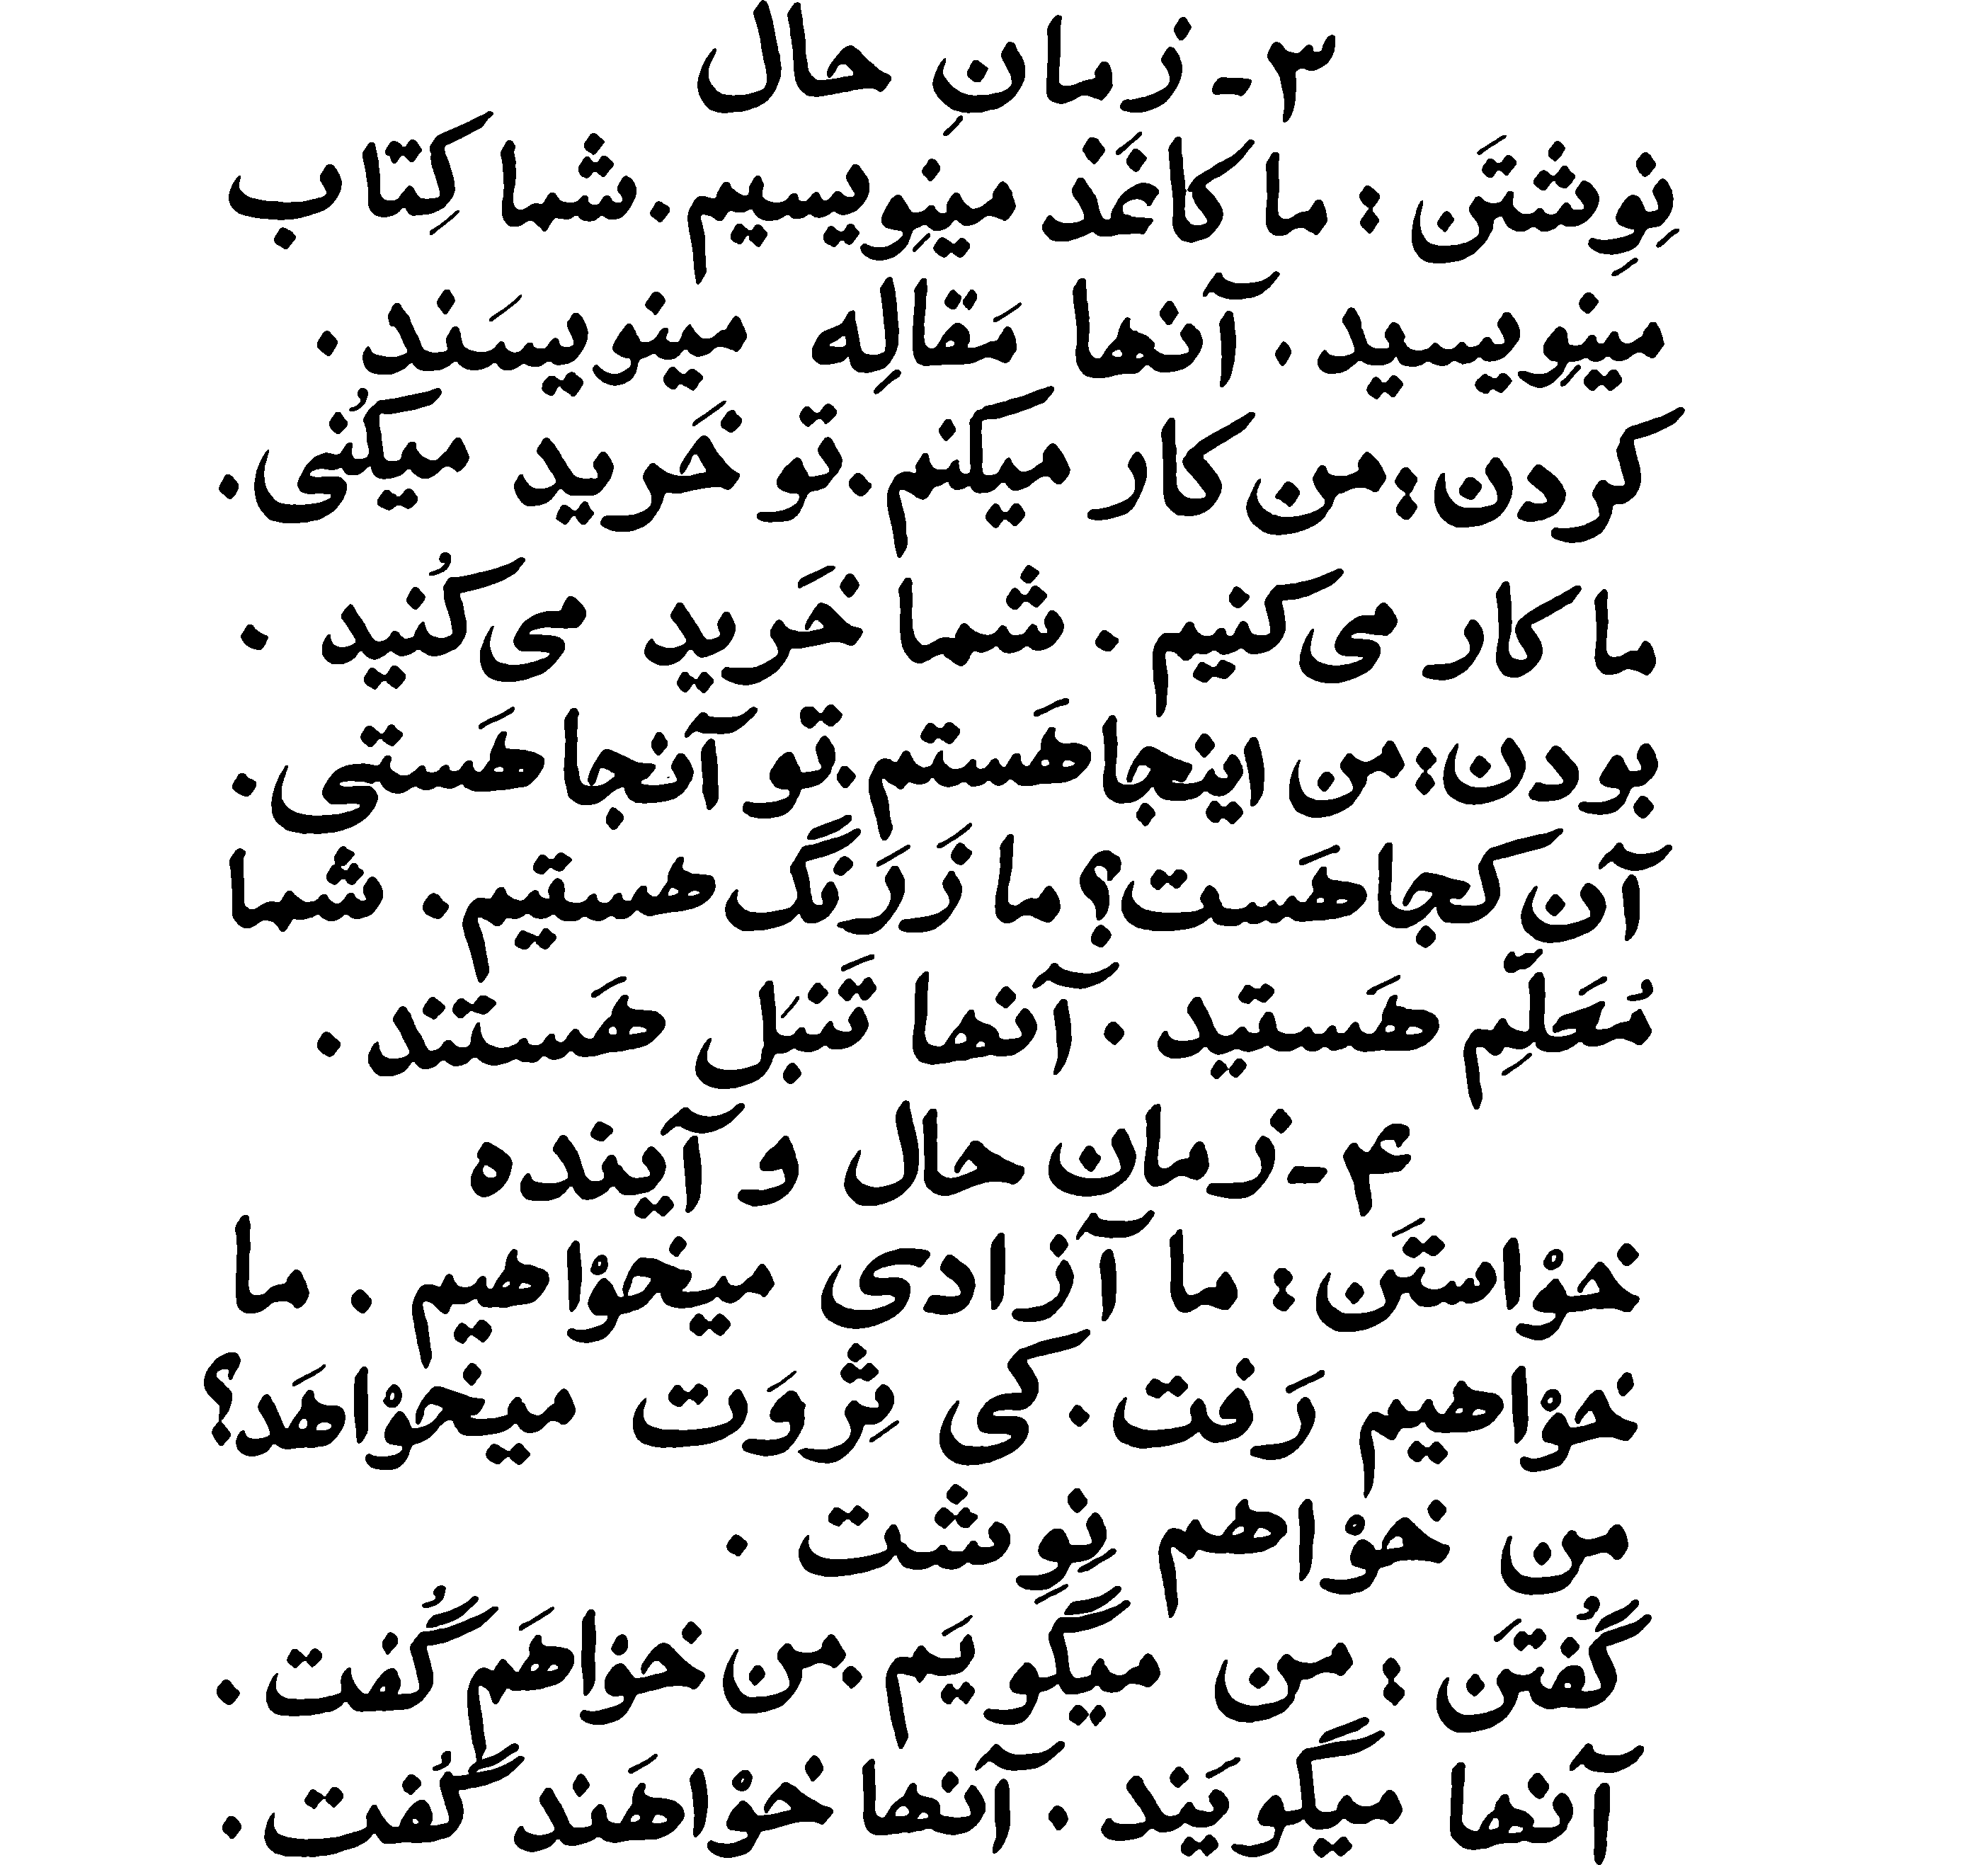 ۳ - زمانِ حال
نِوِشتَن : ما کاغَذ مینِویسیم . شما کِتاب
مینِویسید . آنها مَقالِه مینویسَند .
کردن : من کار میکنم . تو خَرید میکُنی .
ما کار می‌کنیم . شما خَرید می‌کُنید .
بودن : من اینجا هَستم . تو آنجا هَستی .
آن کجا هَست ؟ ما زَرَنگ هستیم . شما
مُعَلِّم هَستید . آنها تَنبَل هَستند .
۴ - زمان حال و آینده
خوْاستَن : ما آزادی میخوْاهیم . ما
خوْاهیم رَفت . کی ثِروَت میخوْاهَد ؟
من خوْاهم نِوِشت .
گُفتَن : من میگویَم . من خوْاهَم گُفت .
آنها میگویَند . آنها خوْاهَند گُفت .